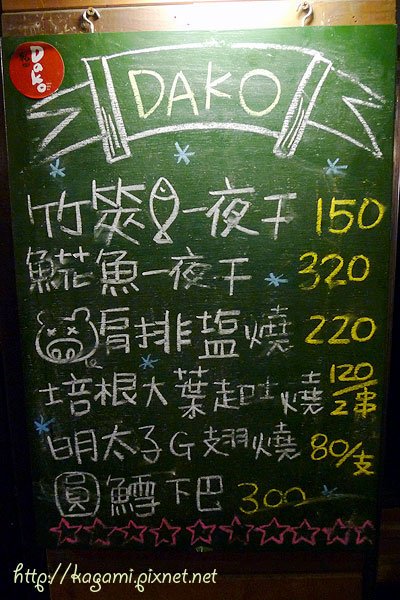 Dako
DAKO
竹筴一夜干 150
𩸽魚一夜干 320
肩排塩燒 220
培根大葉起吐燒 120/2串
明太子G翅燒 80/支
圓鱈下巴 300
http://kagami.pixnet.net